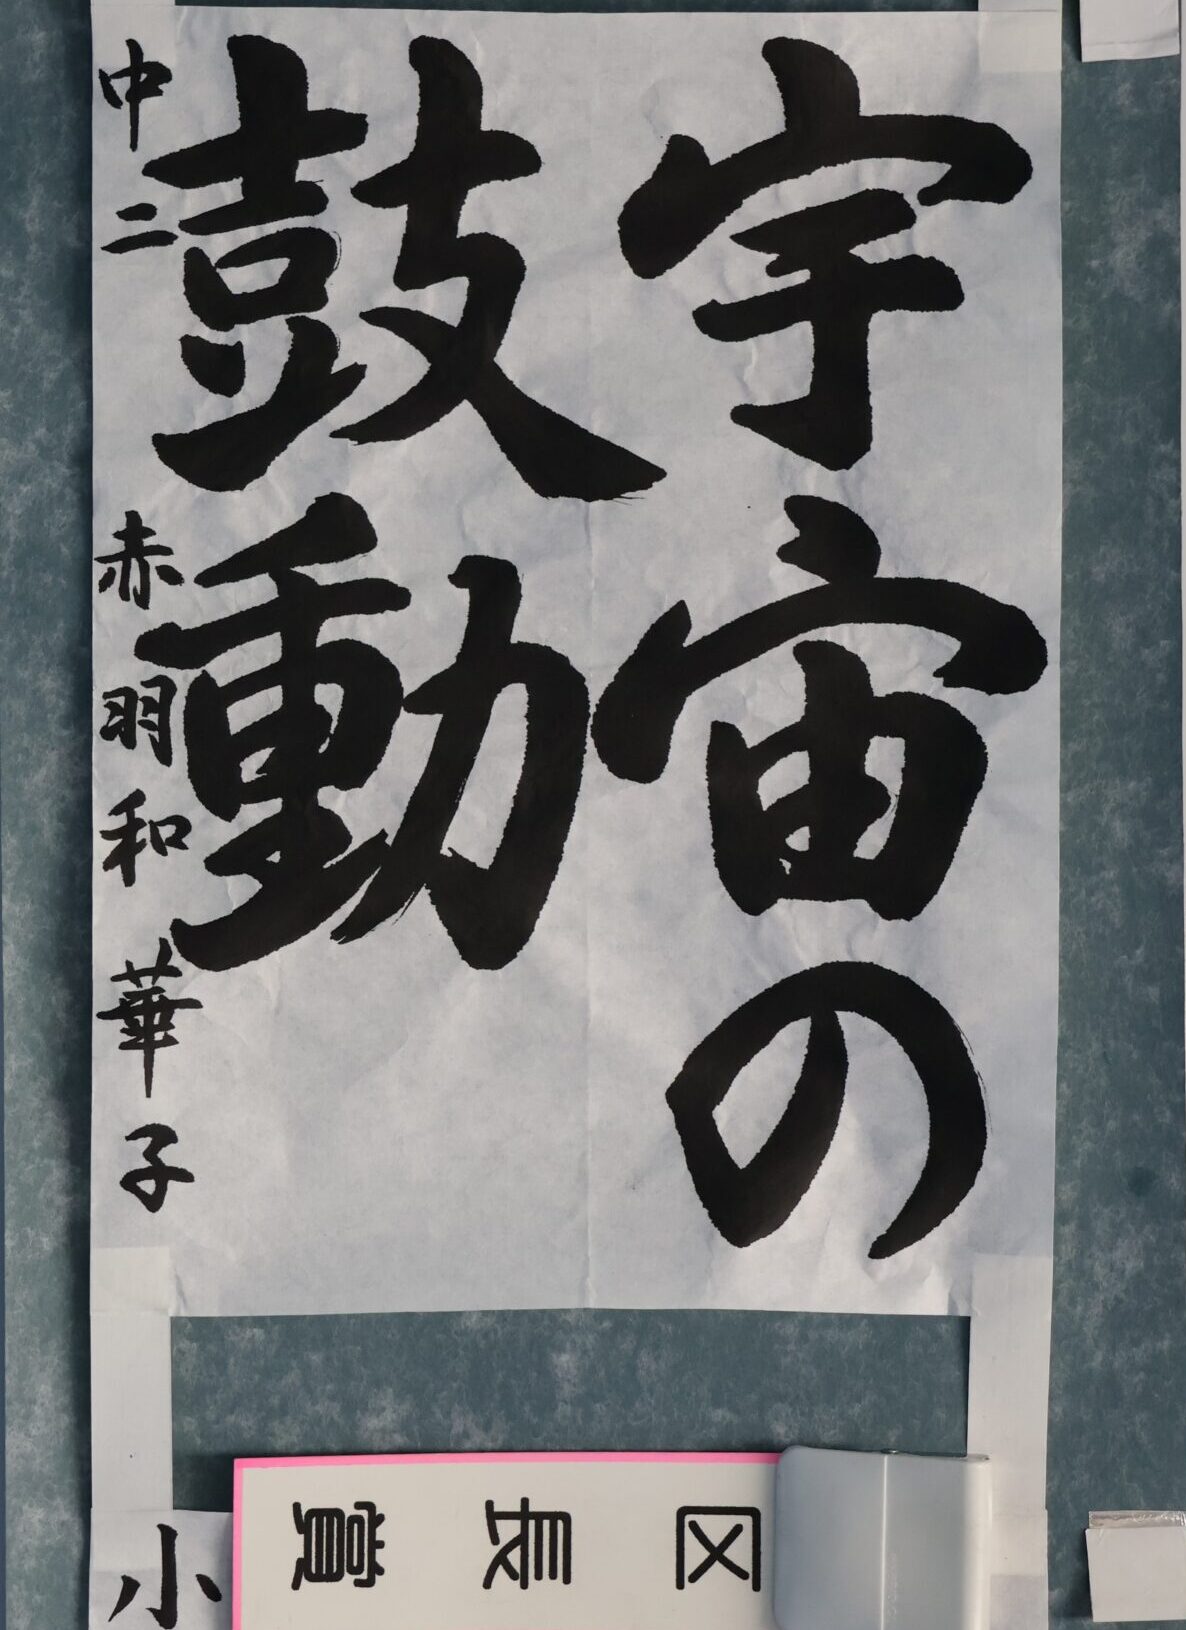 宇宙の
鼓動
中二 赤羽和華子
区長賞
小